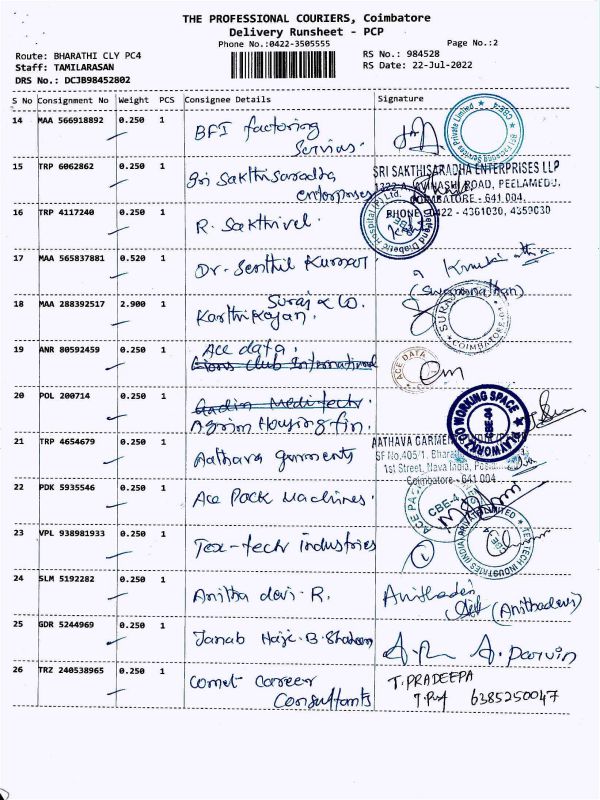 THE PROFESSIONAL COURIERS, Coimbatore
Delivery Runsheet - PCP
Phone No.:0422-3505555
Page No.:2
Route: BHARATHI CLY PC4
RS No.: 984528
Staff: TAMILARASAN
RS Date: 22-Jul-2022
DRS No.: DCJB98452802
S No Consignment No Weight PCS Consignee Details Signature
14 MAA 566918892 0.250 1 BFI factoring
Servies.
15 TRP 6062862 0.250 1 Sri Sakthisaradha
enterprises
SRI SAKTHISARADHA ENTERPRISES LLP
1322 A, AVINASHI ROAD, PEELAMEDU,
COIMBATORE - 641 004.
PHONE : 0422 - 4361030, 4359030
16 TRP 4117240 0.250 1 R. Sakthivel.
17 MAA 565837881 0.520 1 Dr. Senthil Kumar
18 MAA 288392517 2.900 1 Suraj & Co.
Karthikayan.
COIMBATORE
19 ANR 80592459 0.250 1 Ace data.
Lions Club International
ACE DATA
20 POL 200714 0.250 1
Agrim Housing fin.
PLAYWORKZ CO WORKING SPACE
CBE-04
21 TRP 4654679 0.250 1 Aathava garments
AATHAVA GARMEN
SF No.405/1, Bharat
1st Street, Nava India,
Coimbatore - 641 004
22 PDK 5935546 0.250 1 Ace Pack Machines.
ACE PA
CBE-4
23 VPL 938981933 0.250 1 Tex-tech industries
TEX TECH INDUSTRIES (INDIA) PRIVATE LIMITED
24 SLM 5192282 0.250 1 Anitha devi. R.
Anithadevi
(Anithadevi)
25 GDR 5244969 0.250 1 Janab Haji. B.
A. Parvin
26 TRZ 240538965 0.250 1 Comet Career
Consultants
T. PRADEEPA
6385250047